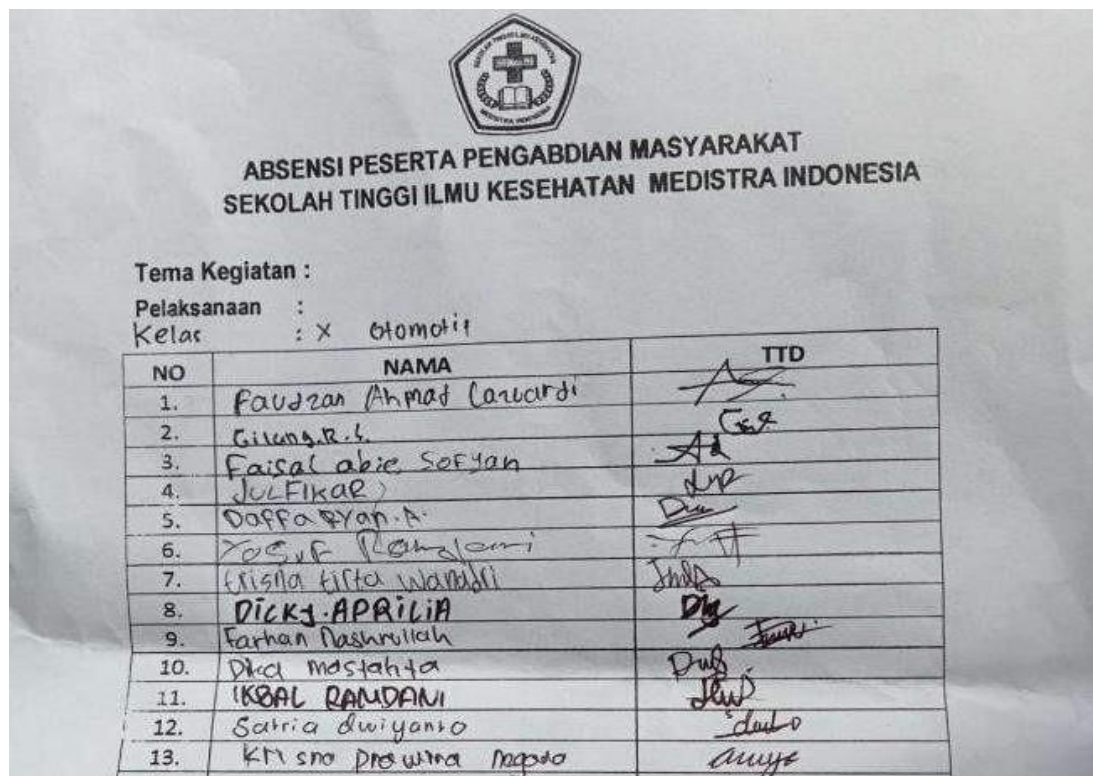 MEDISTRA INDONESIA
ABSENSI PESERTA PENGABDIAN MASYARAKAT
SEKOLAH TINGGI ILMU KESEHATAN MEDISTRA INDONESIA
Tema Kegiatan :
Pelaksanaan :
Kelas : X Otomotif
NO NAMA TTD
1. Faudzan Ahmad
2. Gilang.R.S.
3. Faisal abie Sofyan
4. JULFIKAR
5. Daffa Ryan.A.
6. Yosuf
7. trisna tirta
8. DICKY.APRILIA
9. Farhan Nashrullah
10. Dika mastahta
11. IKBAL RAMDANI
12. Satria dwiyanto
13. Krisno prawira